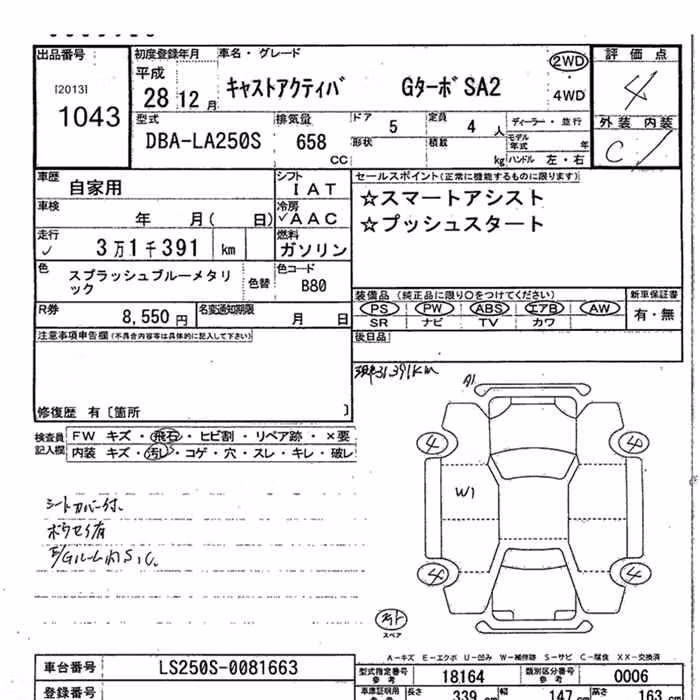 出品番号 初度登録年月 車名・グレード 評価点
[2013] 平成 2WD
1043 28 12月 キャストアクティバ GターボSA2 4WD 4
型式 排気量 ドア 5 定員 4人 ディーラー・並行 外装 内装
DBA-LA250S 658 CC 形状 積載 kg モデル年式 年 C
ハンドル 左・右
車歴 自家用 シフト IAT セールスポイント(正常に機能するものに限ります)
車検 年 月( 日) 冷房 ✓AAC ☆スマートアシスト
走行 ✓ 3万1千391 km 燃料 ガソリン ☆プッシュスタート
色 スプラッシュブルーメタリック 色替 色コード B80
装備品 (純正品に限り○をつけてください) 新車保証書
R券 8,550円 名変通知期限 月 日 PS PW ABS エアB AW 有・無
SR ナビ TV カワ
注意事項申告欄(不具合内容等は具体的に記入して下さい) 後日品
現31,391km A1
修復歴 有〔箇所 〕
検査員記入欄 FW キズ・飛石・ヒビ割・リペア跡・×要
内装 キズ・汚し・コゲ・穴・スレ・キレ・破レ
4 4
W1
シートカバー付、
4 4
スペア
A-キズ E-エクボ U-凹み W-補修跡 S-サビ C-腐食 XX-交換済
車台番号 LS250S-0081663 型式指定番号 参考 18164 類別区分番号 参考 0006
登録番号 車庫証明用 参考 長さ 339 cm 幅 147 cm 高さ 163 cm